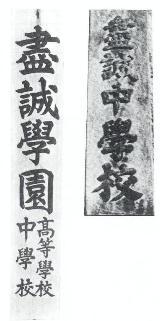 盡誠學園
高等學校
中學校
盡誠中學校